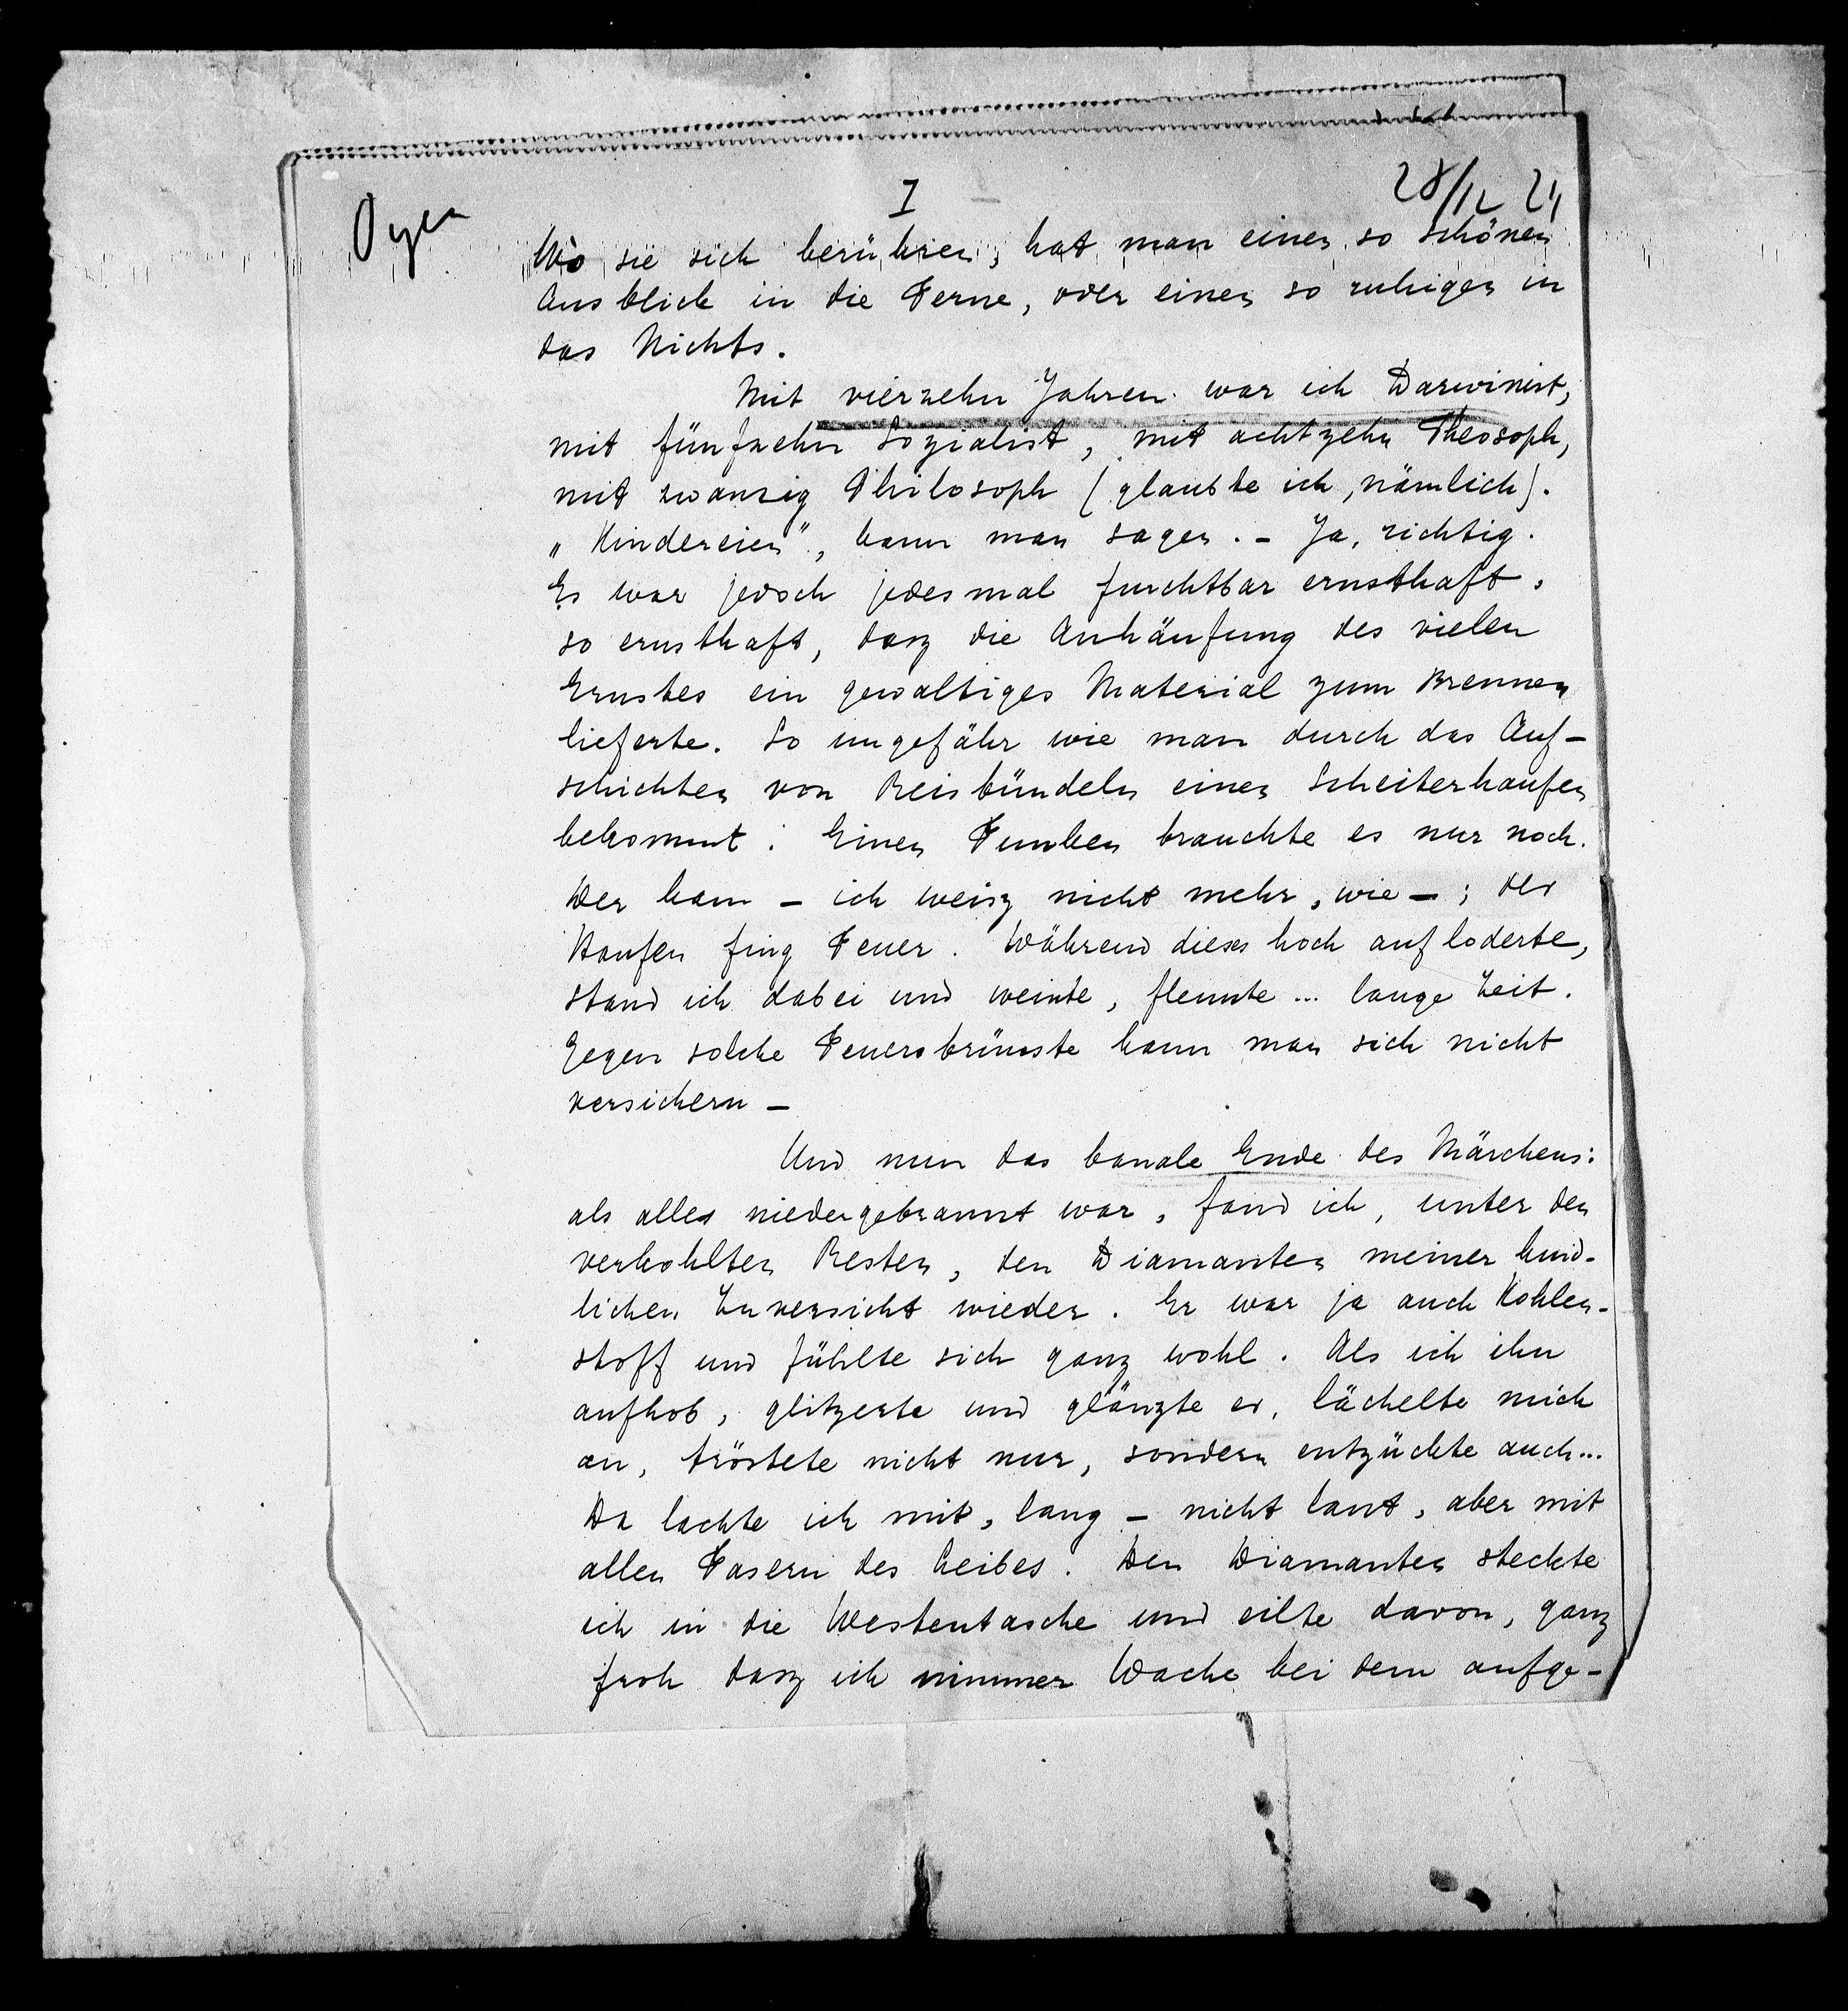 I
28/12 24
Wo sie sich berühren, hat man einen so schönen
Ausblick in die Ferne, oder einen so ruhigen in
das Nichts.
Mit vierzehn Jahren war ich Darwinist,
mit fünfzehn Sozialist, mit achtzehn Theosoph,
mit zwanzig Philosoph (glaubte ich, nämlich).
„Kindereien", kann man sagen. – Ja, richtig.
Es war jedoch jedesmal furchtbar ernsthaft,
so ernsthaft, dasz die Anhäufung des vielen
Ernstes ein gewaltiges Material zum Brennen
lieferte. So ungefähr wie man durch das Auf-
schichten von Reisbündeln einen Scheiterhaufen
bekommt: Einen Funken brauchte es nur noch.
Der kam – ich weisz nicht mehr, wie –; der
Haufen fing Feuer. Während dieses hoch aufloderte,
stand ich dabei und weinte, flennte ... lange Zeit.
Gegen solche Feuersbrünste kann man sich nicht
versichern –
Und nun das banale Ende des Märchens:
als alles niedergebrannt war, fand ich, unter den
verkohlten Resten, den Diamanten meiner kind-
lichen Zuversicht wieder. Er war ja auch Kohlen-
stoff und fühlte sich ganz wohl. Als ich ihn
aufhob, glitzerte und glänzte er, lächelte mich
an, tröstete nicht nur, sondern entzückte auch...
Da lachte ich mit, lang – nicht laut, aber mit
allen Fasern des Leibes. Den Diamanten steckte
ich in die Westentasche und eilte davon, ganz
froh dasz ich nimmer Wache bei dem aufge-